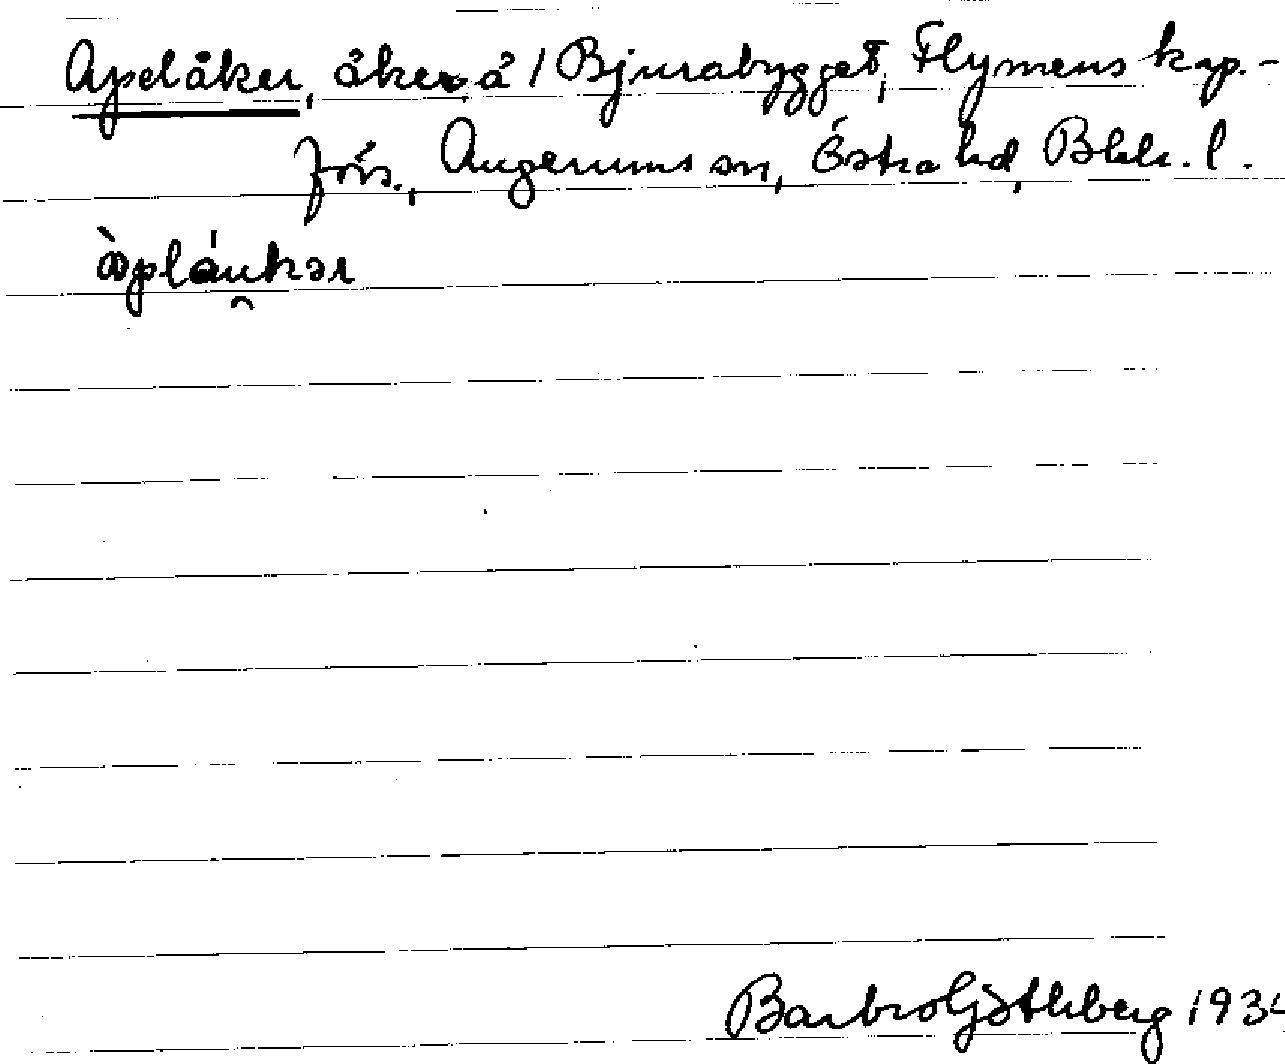 Apelåker, åker å 1 Bjurabygget, Flymens kap.-
förs., Augerums sn, Östra hd, Blek. l.
Barbro Göthberg